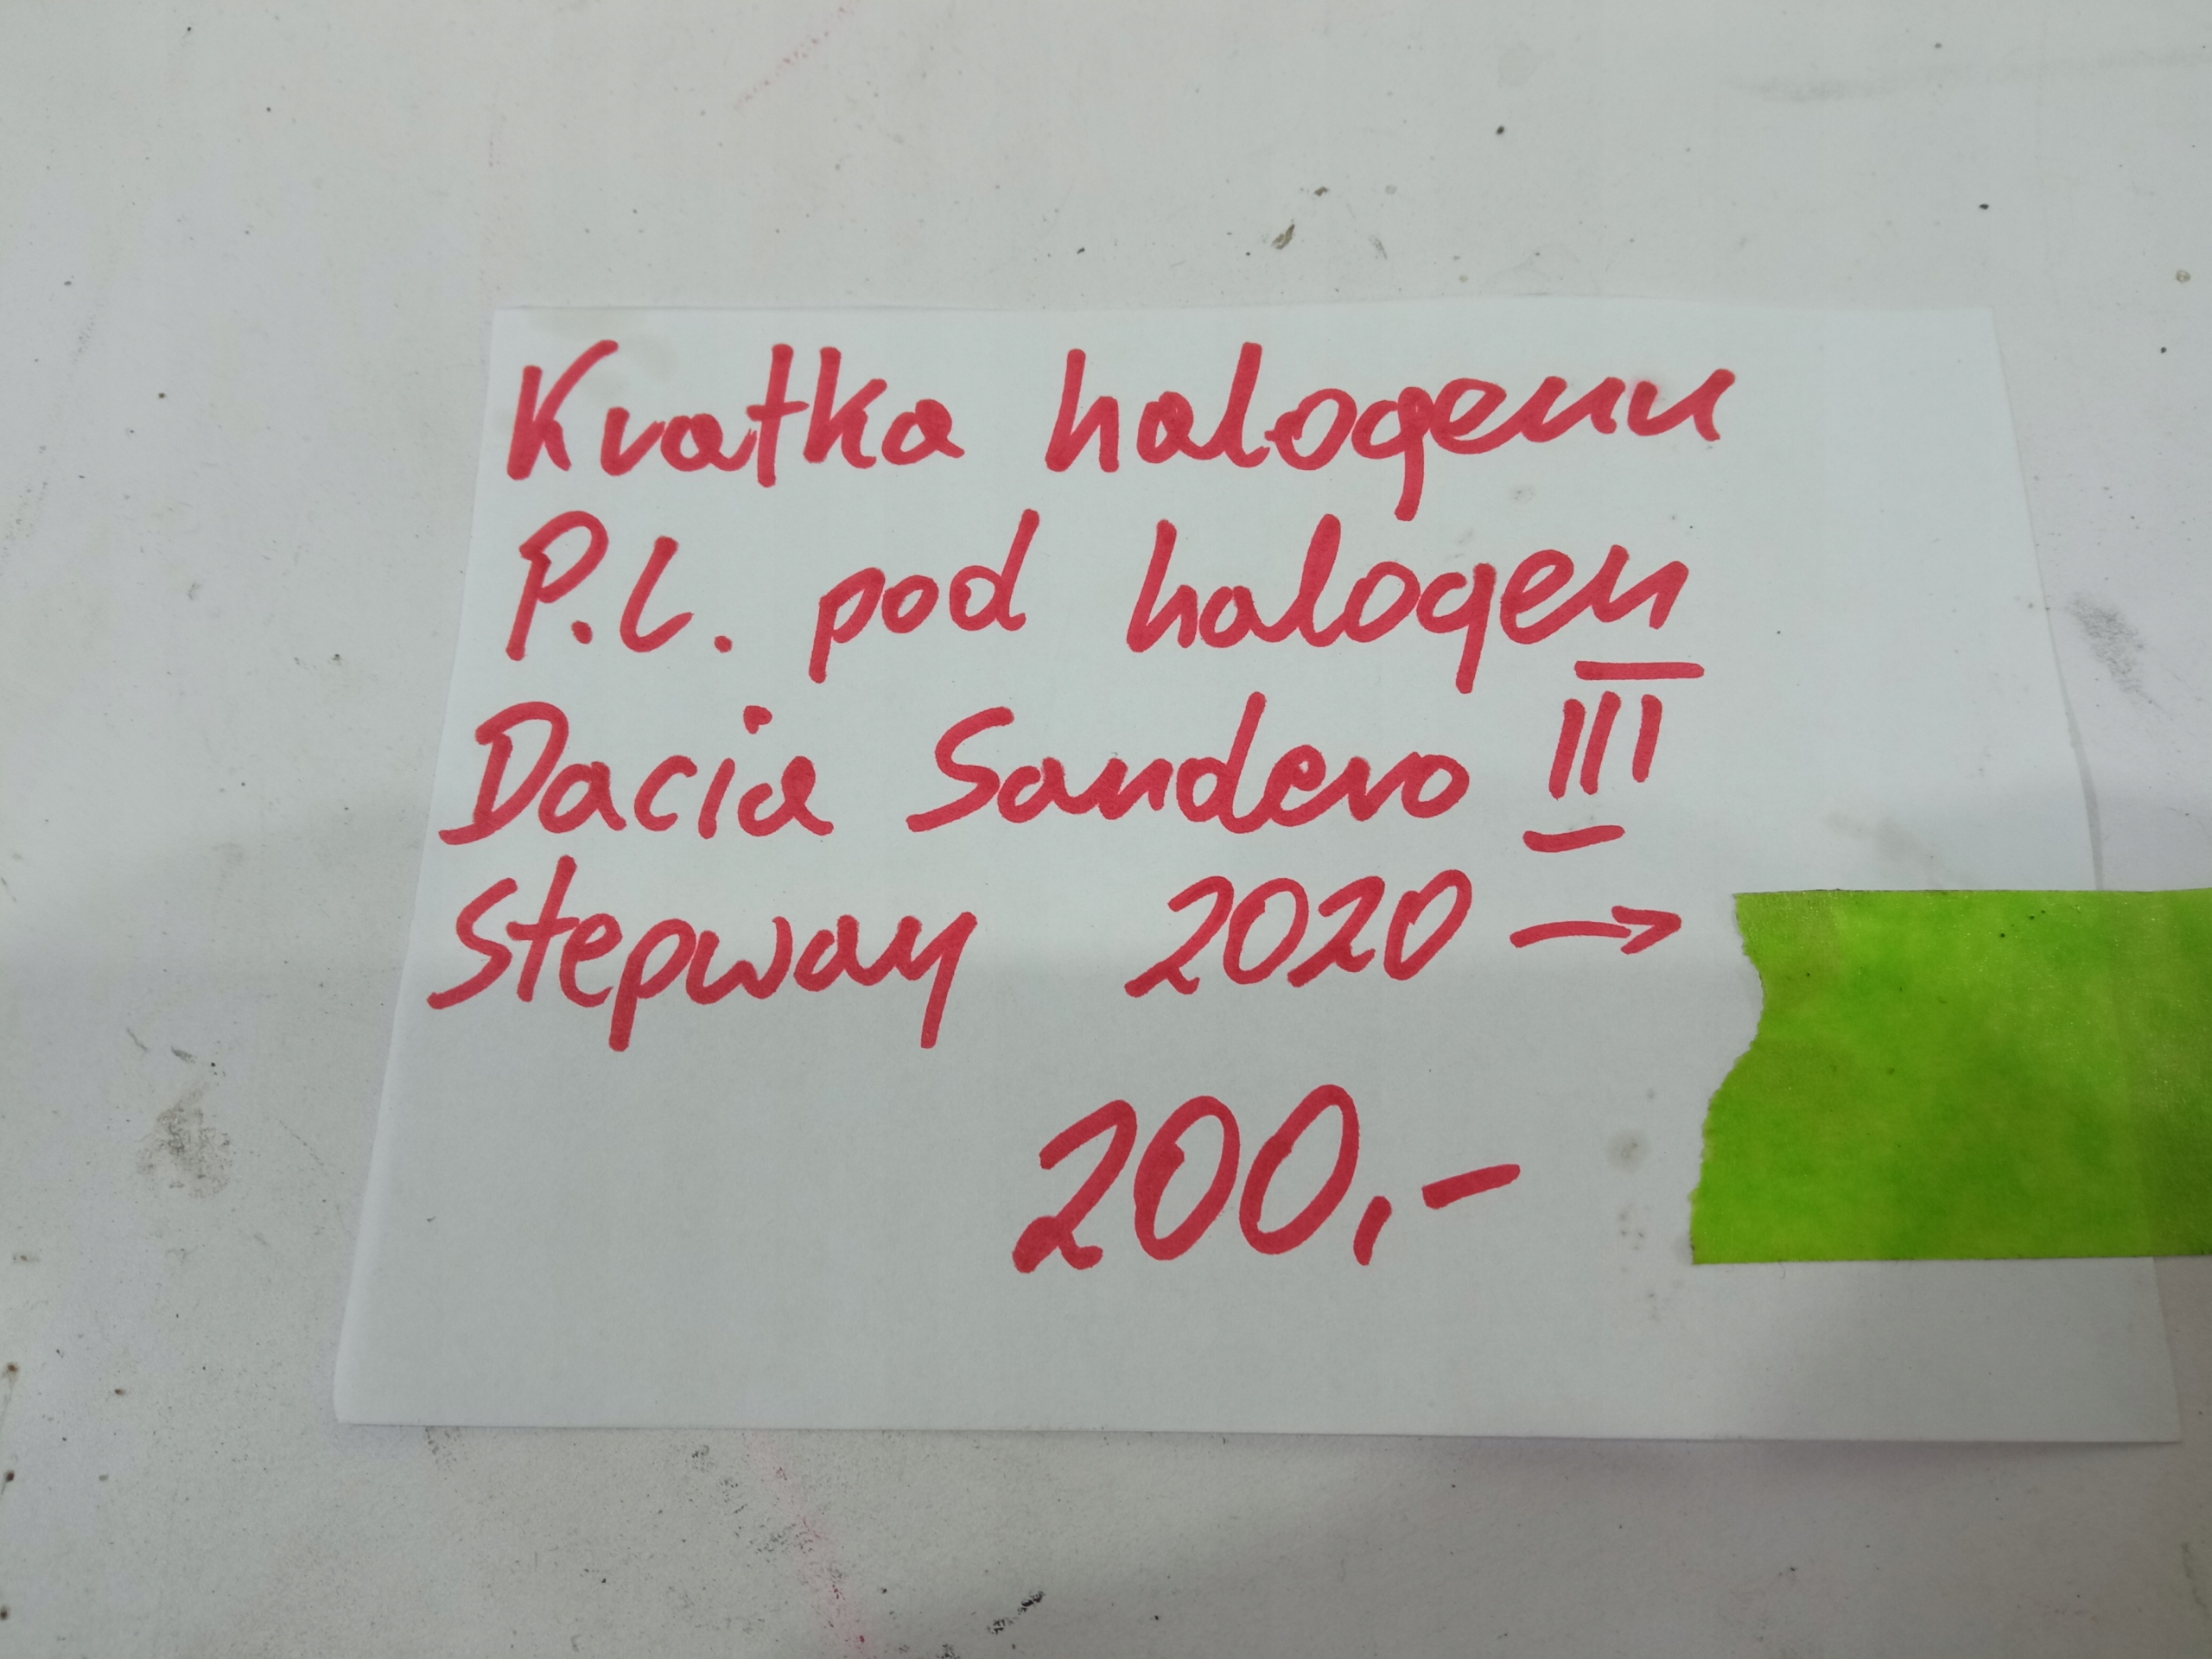 Kratka halogenu
P.L. pod halogen
Dacia Sandero III
Stepway 2020 →
200,-